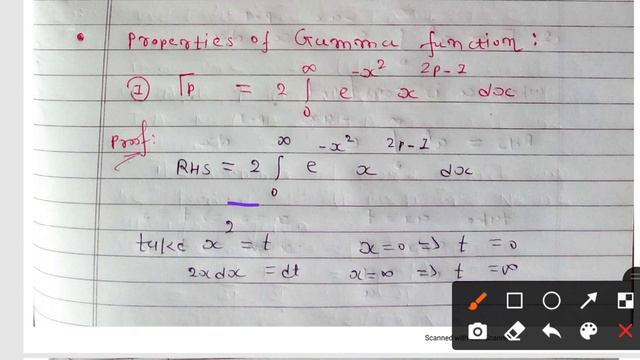 • Properties of Gamma function :
① Γp = 2 ∫₀^∞ e^{-x²} x^{2p-1} dx
Proof:
RHS = 2 ∫₀^∞ e^{-x²} x^{2p-1} dx
take x² = t x=0 ⇒ t = 0
2x dx = dt x=∞ ⇒ t = ∞
Scanned with